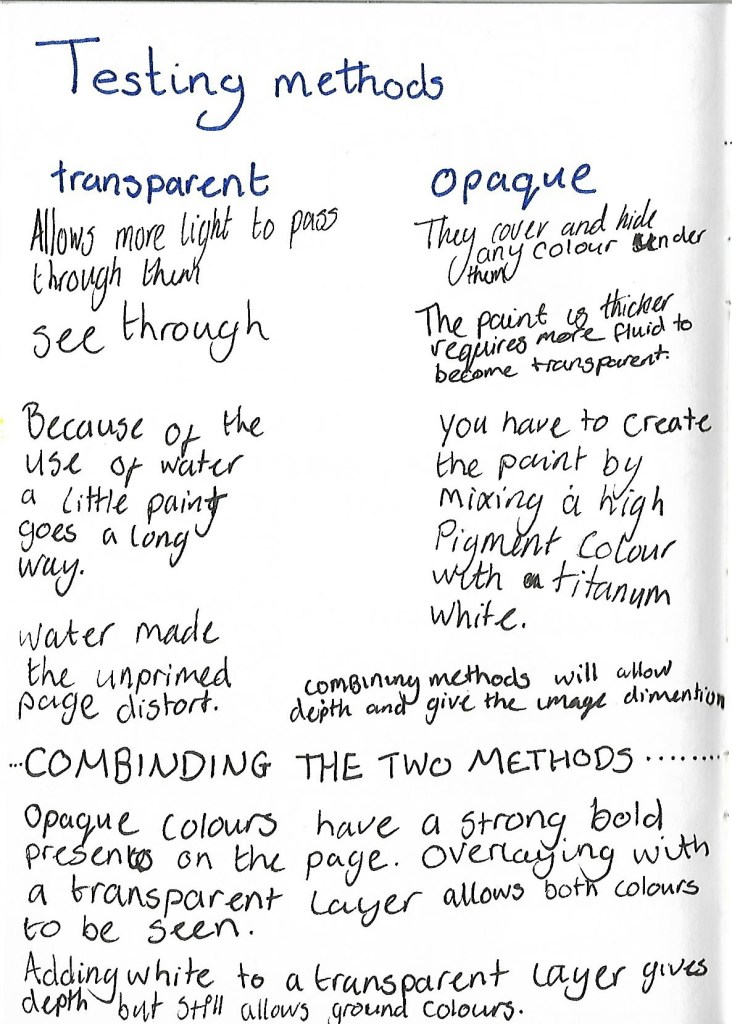 Testing methods
transparent
Allows more light to pass
through them
see through
Because of the
use of water
a little paint
goes a long
way.
water made
the unprimed
page distort.
opaque
They cover and hide
any colour under
them
The paint is thicker
requires more fluid to
become transparent.
you have to create
the paint by
mixing a high
Pigment colour
with a titanum
white.
combining methods will allow
depth and give the image dimention
...COMBINDING THE TWO METHODS........
Opaque colours have a strong bold
presents on the page. Overlaying with
a transparent layer allows both colours
to be seen.
Adding white to a transparent layer gives
depth but still allows ground colours.